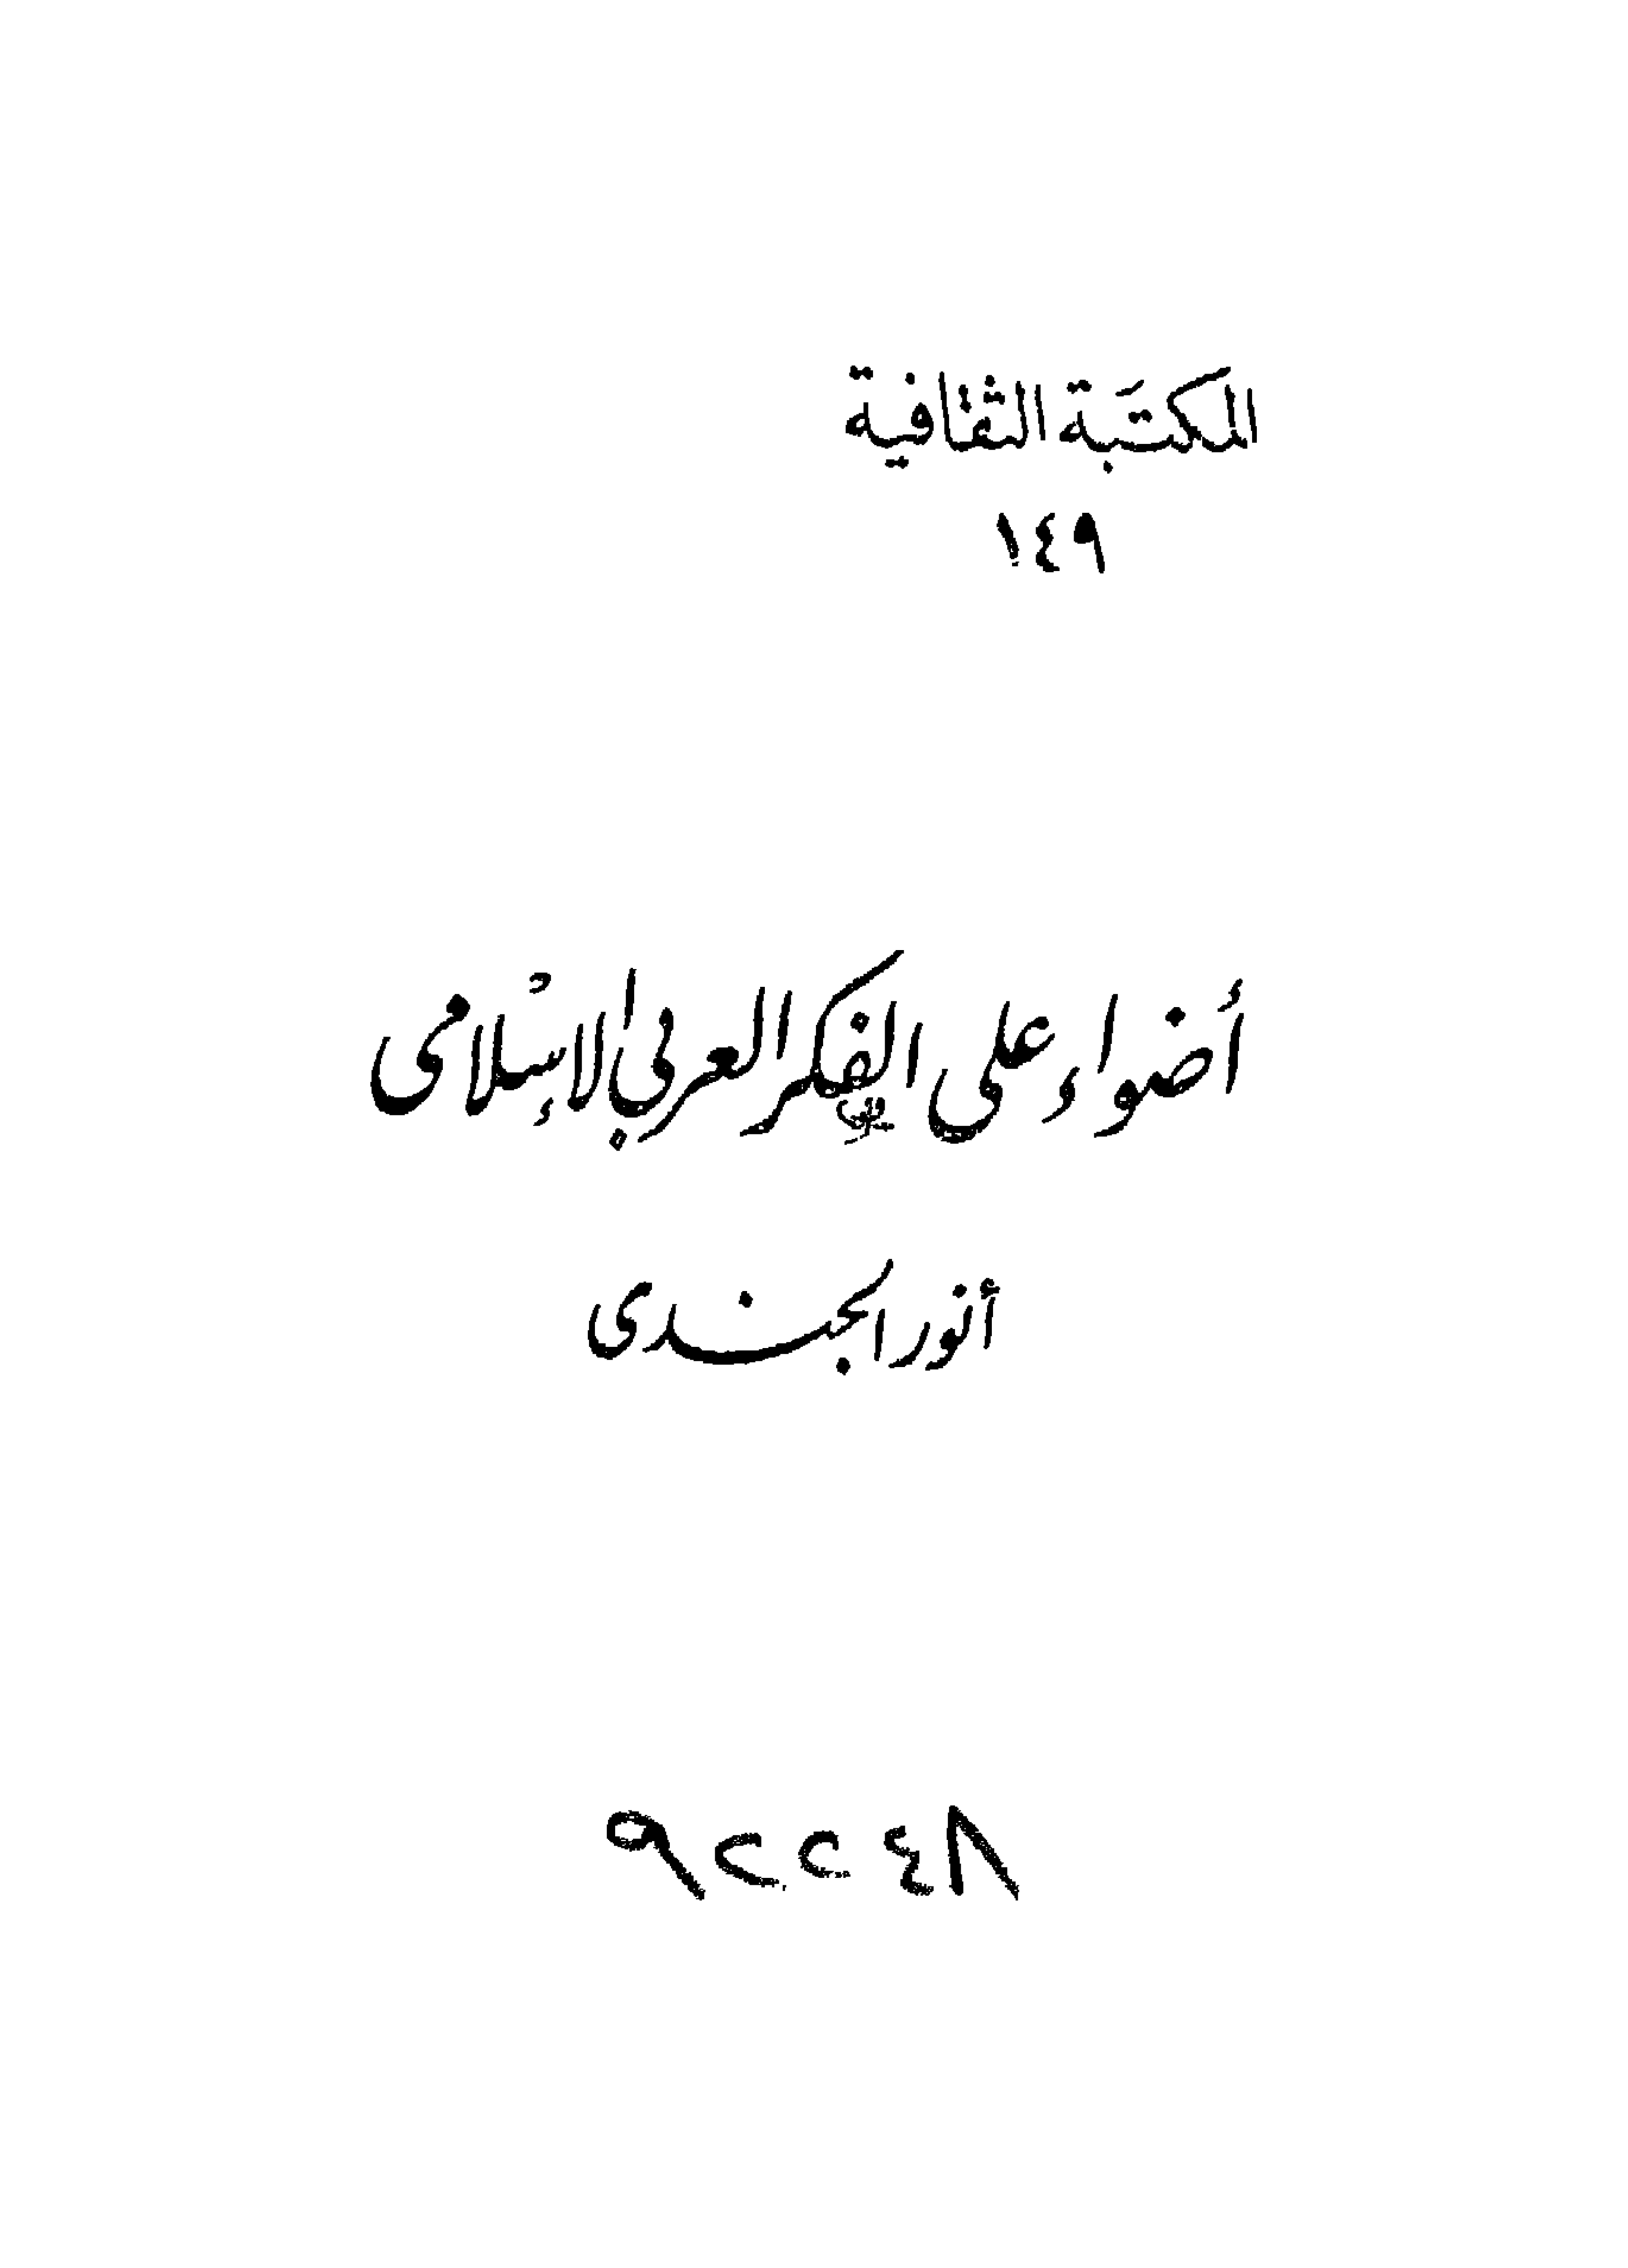 المكتبة الثقافية
١٤٩
أضواء على الفكر العربي الإسلامى
أنور الجندى
٩٢٢٤٨